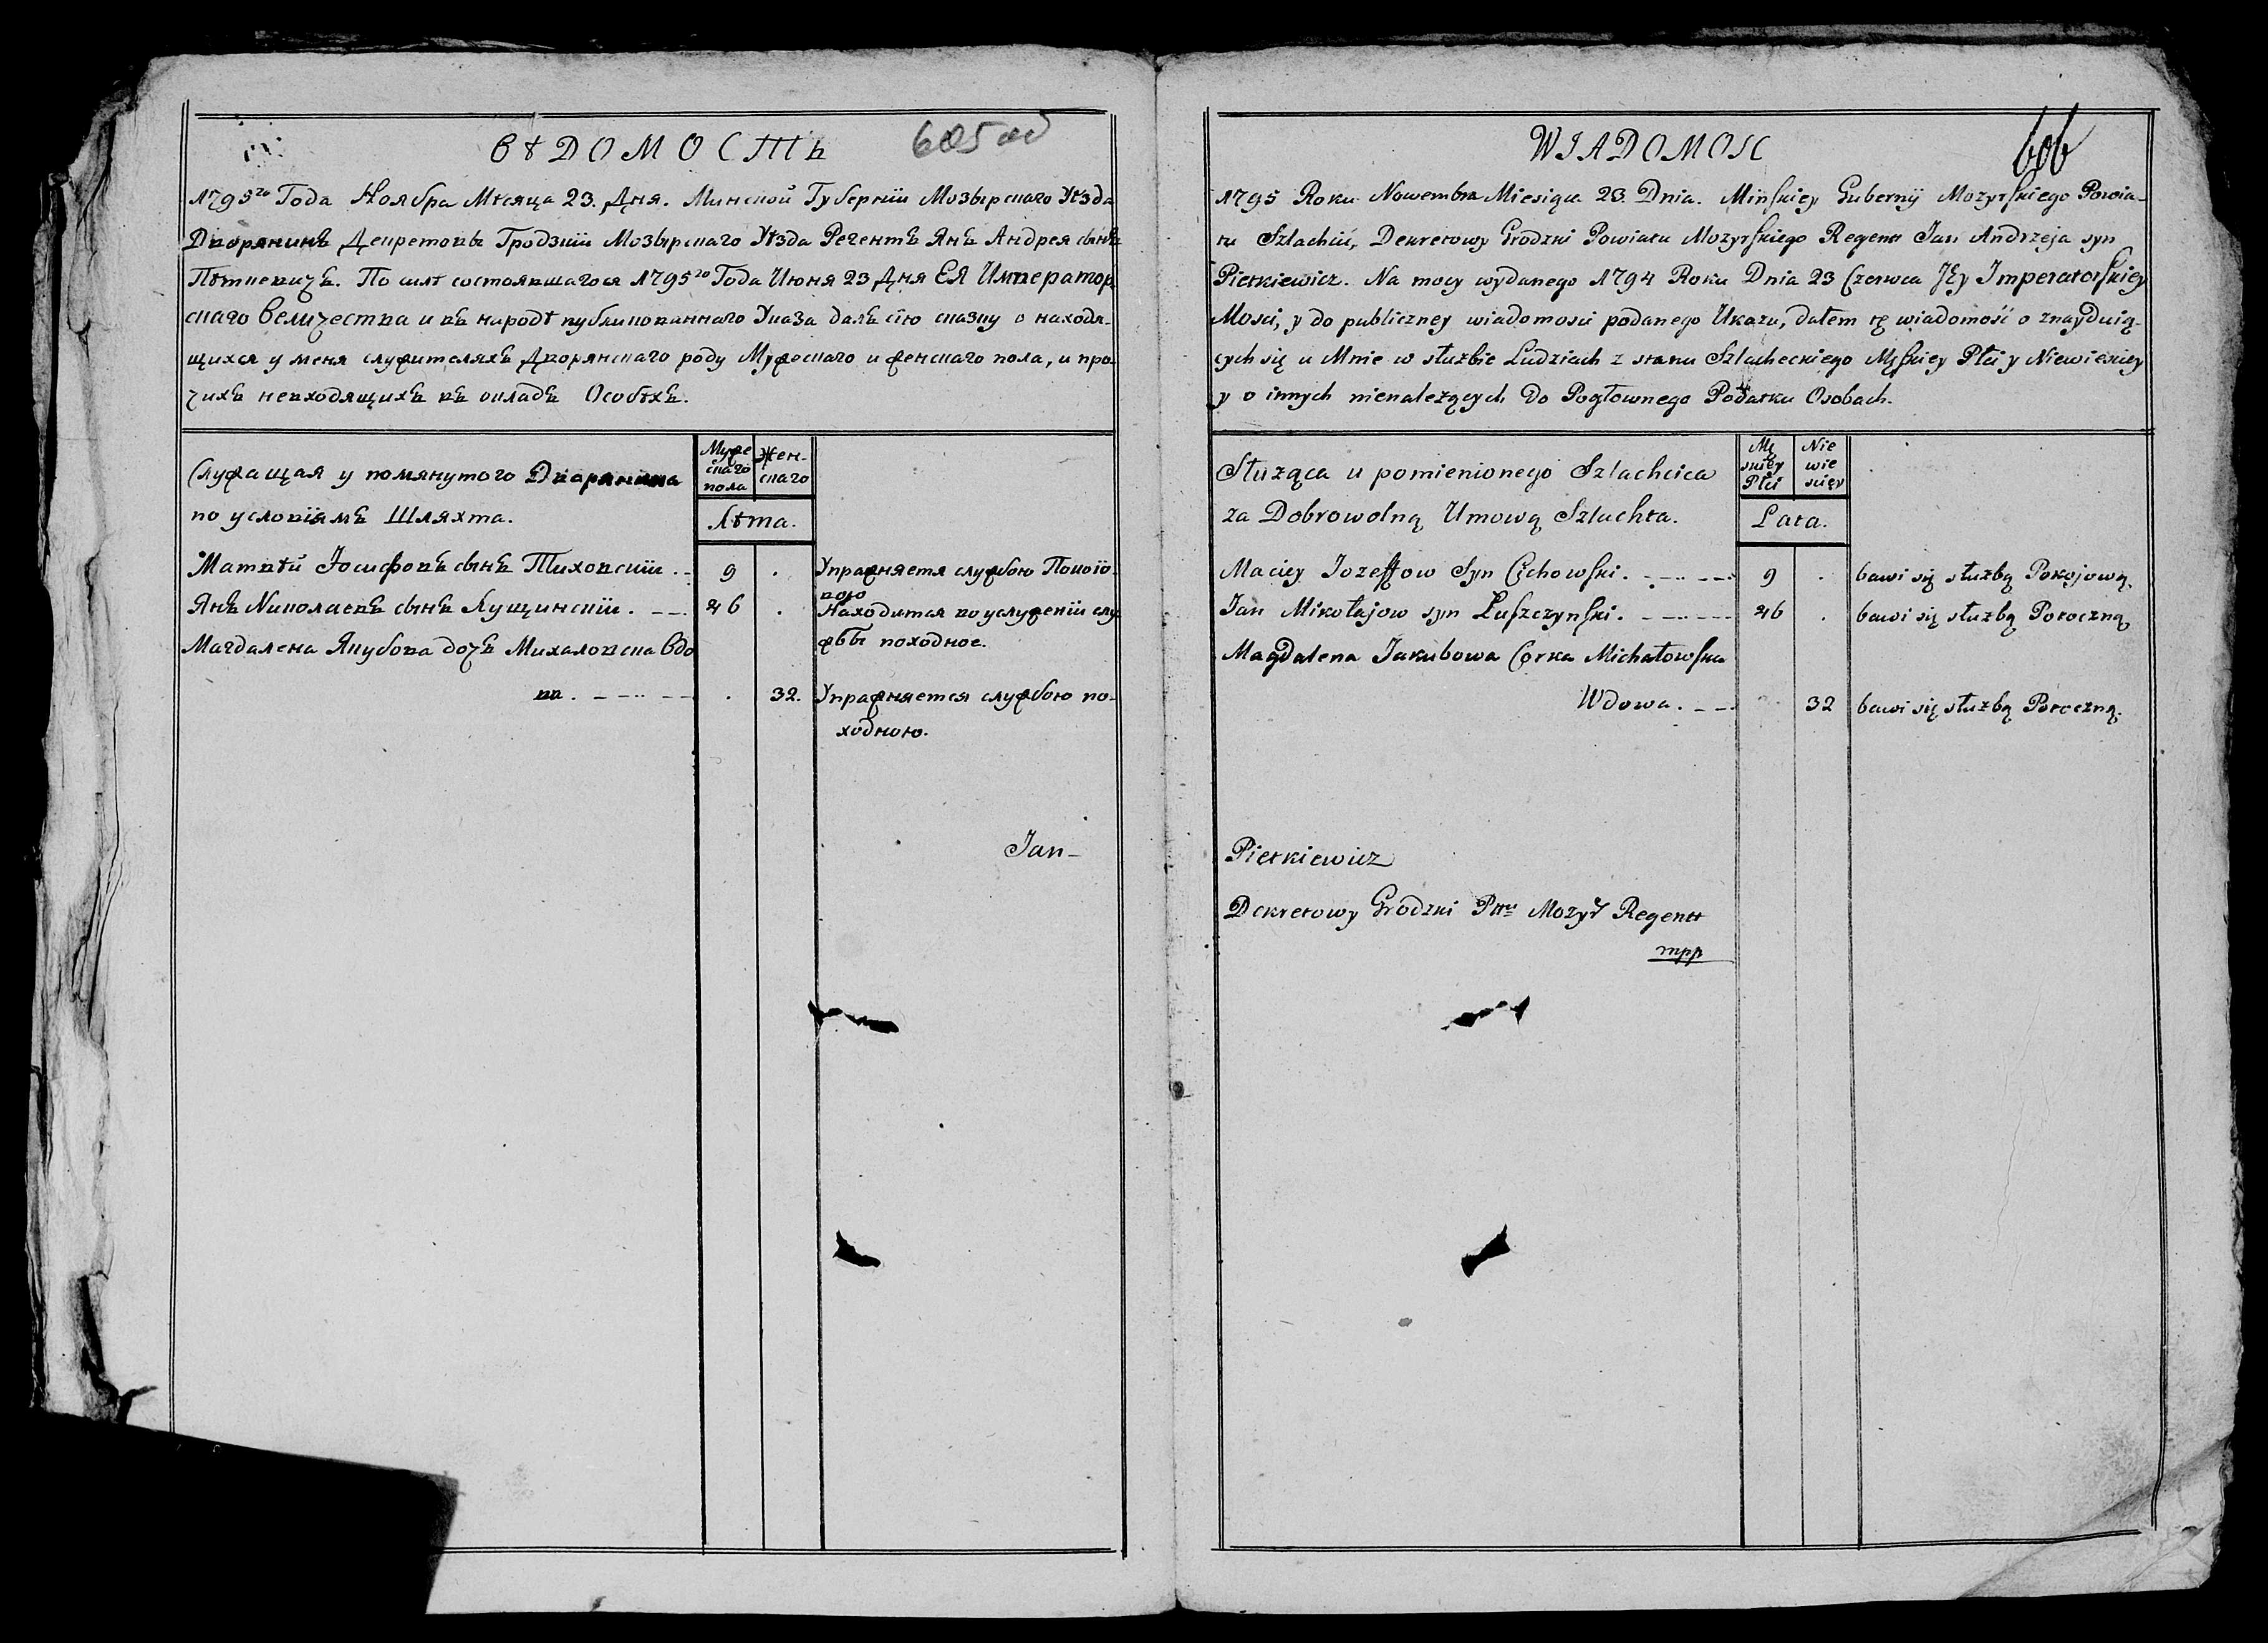 ВѢДОМОСТЬ
605 об
1795го Года Ноября Мѣсяца 23. Дня. Минской Губернїи Мозырского Уѣзда
Дворянинъ Декретовы Гродзкїи Мозырскаго Уѣзда Регентъ Янъ Андрея сынъ
Пѣткевичъ. По силѣ состоявшагося 1795го Года Июня 23 Дня ЕЯ Император,
скаго Величества и въ народѣ публикованнаго Указа далъ сїю сказку о находя-
щихся у меня служителяхъ Дворянскаго роду Мужескаго и женскаго пола, и про-
чихъ невходящихъ въ окладъ Особѣхъ.
Служащая у помянутого Дворянина
по условїямъ Шляхта.
Муже
скаго
пола
Жен-
скаго
Лѣта.
Матвѣй Іосифовъ сынъ Тиховскїи . - 9 . Упражняетя службою Покоїо-
вою
Янъ Николаевъ сынъ Лущинскїи . - - 26 . Находится во услуженїи слу
жбы походное.
Магдалена Якубова дочъ Михаловска Вдо
ва . - - - - . 32. Упражняется службою по-
ходною.
Jan-
WIADOMOSC
606
1795 Roku Nowembra Miesiąca 23. Dnia. Minskiey Gubernÿ Mozyrskiego Powia-
tu Szlachcic, Dekretowy Grodzki Powiatu Mozyrskiego Regent Jan Andrzeja syn
Pietkiewicz. Na mocy wydanego 1794 Roku Dnia 23 Czerwca JEy Imperatorskiey
Mosci, y do publiczney wiadomosci podanego Ukazu, dałem tę wiadomość o znayduią-
cych się u Mnie w służbie Ludziach z stanu Szlacheckiego Męskiey Płci y Niewieściey
y o innych nienależących do Pogłownego Podatku Osobach.
Służąca u pomienionego Szlachcica
za Dobrowolną Umową Szlachta.
Mę
skiey
Płci
Nie
wie
sciey
Lata.
Maciey Jozeffow Syn Cichowski . - - - - 9 . bawi się służbą Pokojową.
Jan Mikołajow syn Łuszczynski . - - - - 26 . bawi się służbą Poroczną
Magdalena Jakubowa Corka Michałowska
Wdowa . - - 32 bawi się służbą Poroczną.
Pietkiewicz
Dekretowy Grodzki Pttu Mozyr Regentt
mpp